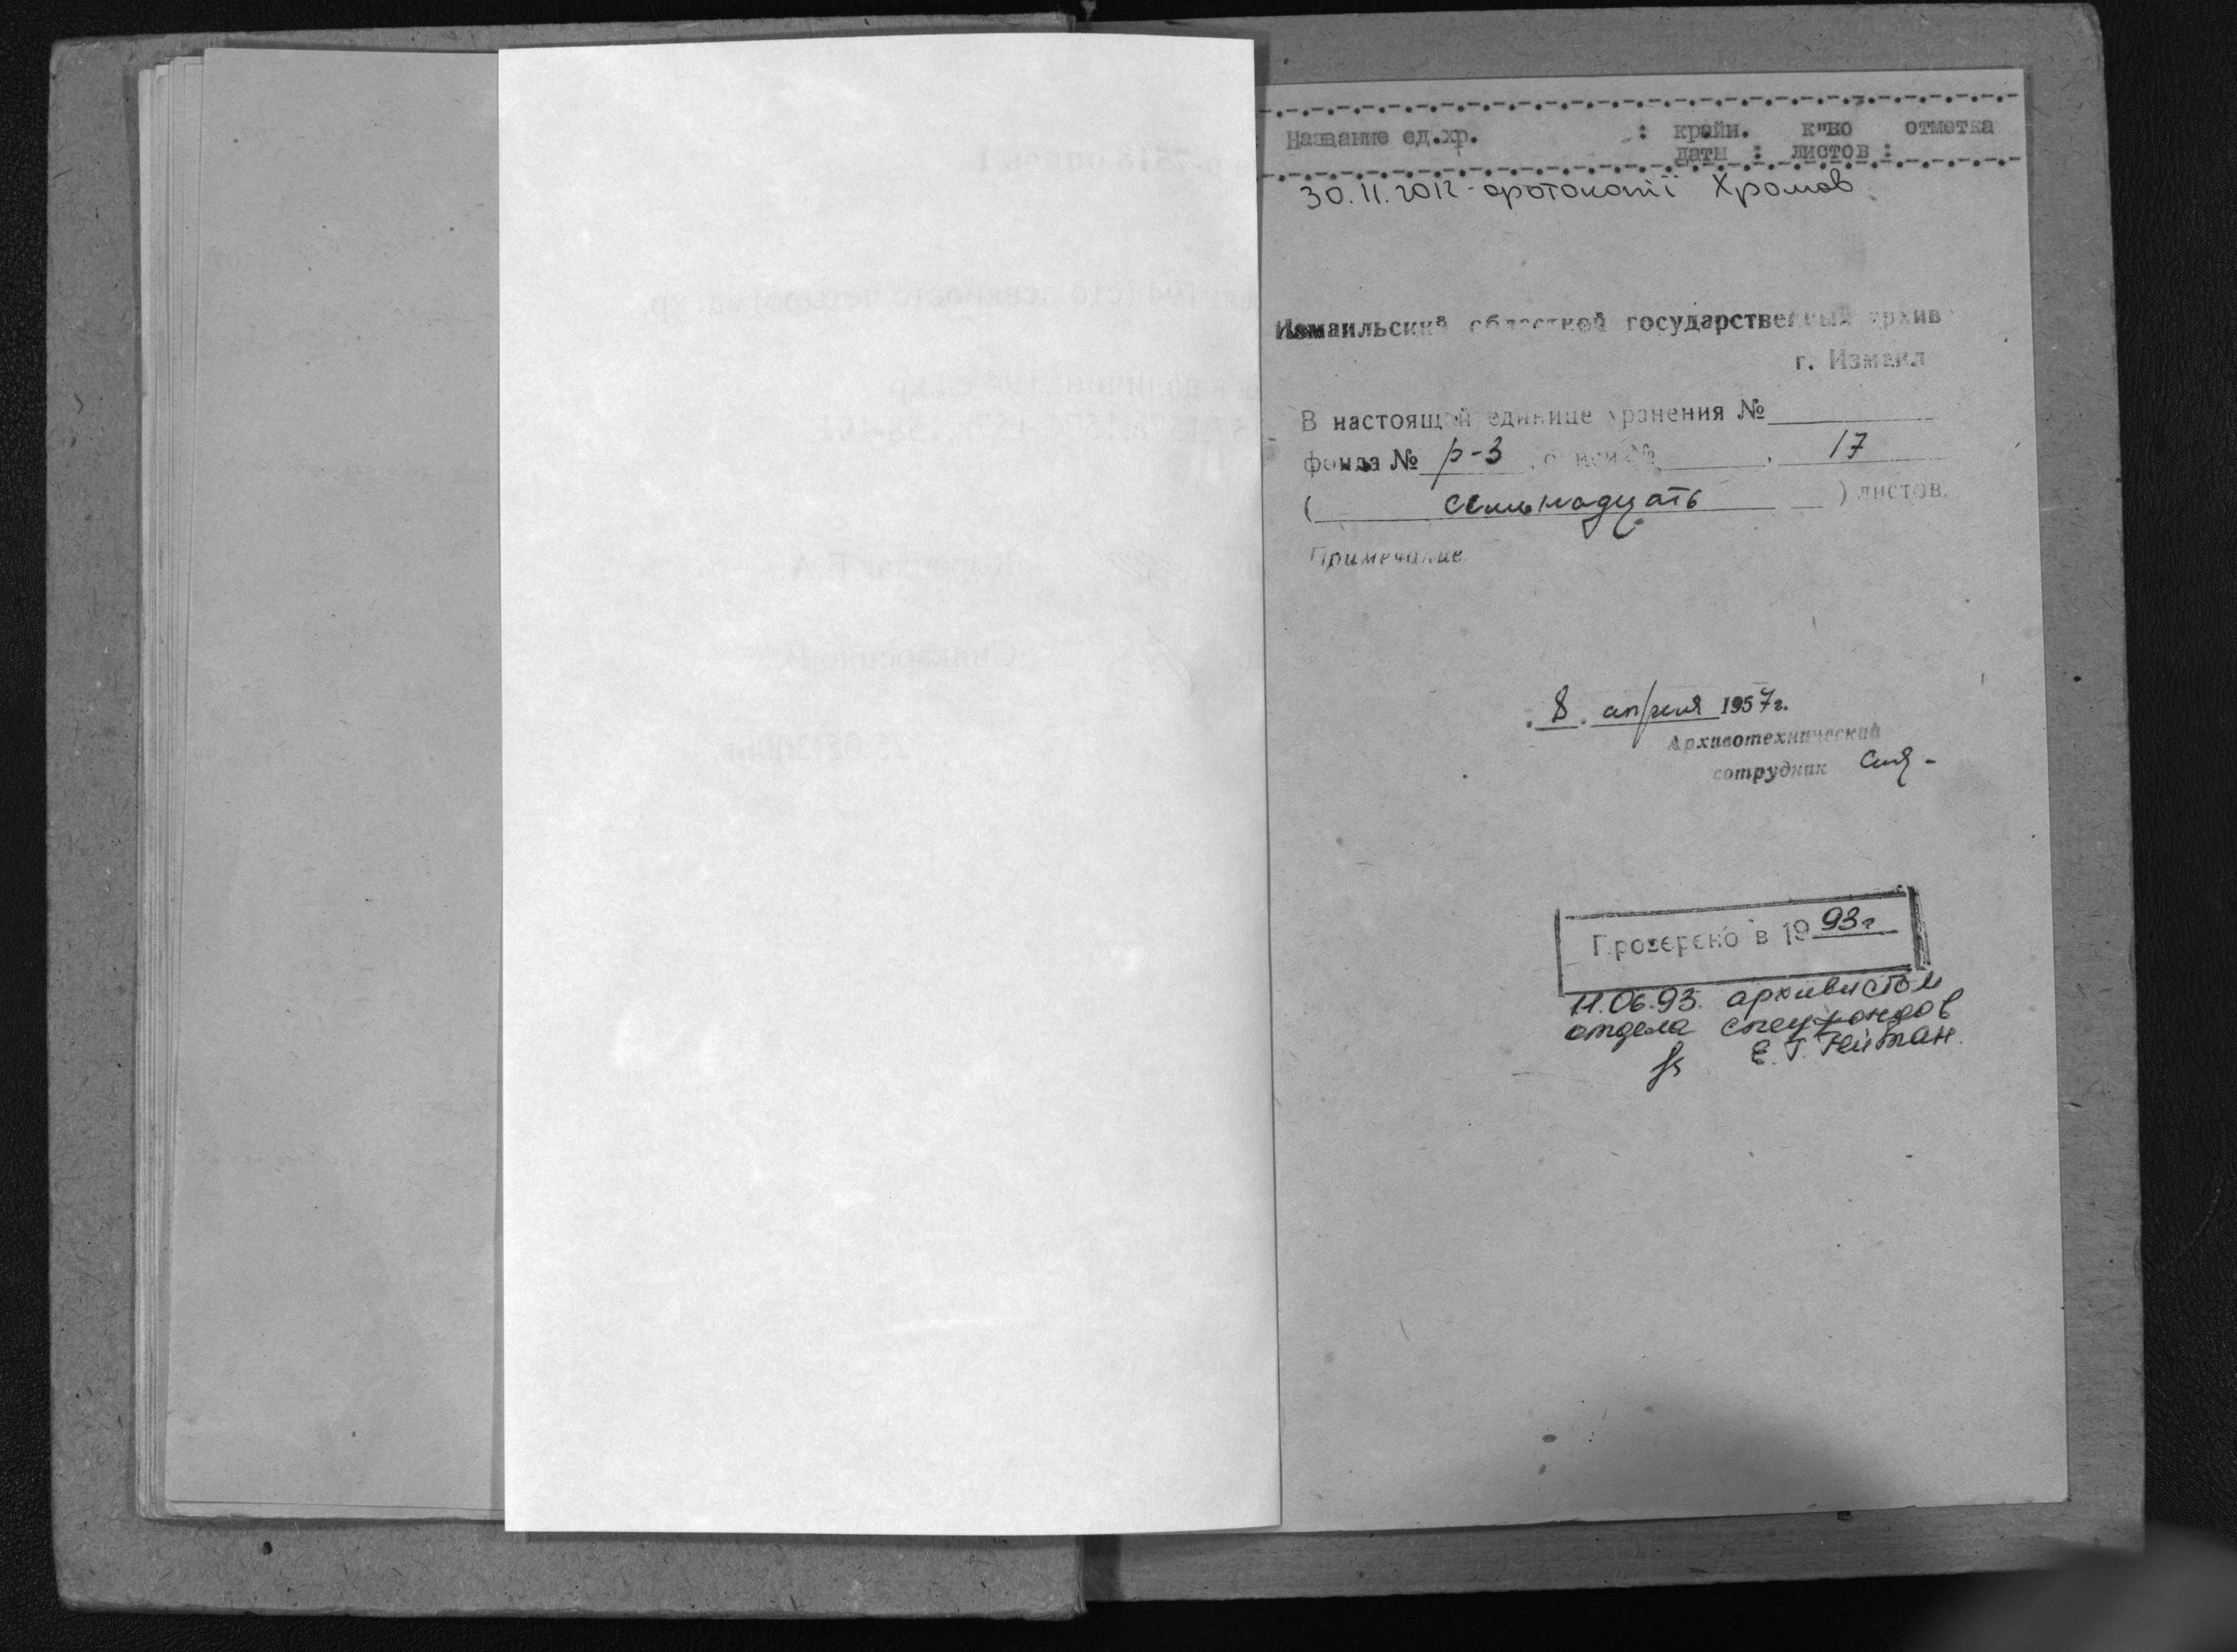 Название ед.хр. : крайн. к"во отметка
даты : листов :
30.11.2012 - фотокопії Хромов
Измаильский областной государственный архив
г. Измаил
В настоящей единице хранения №
фонда № р-3, описи № , 17
( семьнадцать ) листов.
Примечание
"8" апреля 1957г.
Архивотехнический
сотрудник
Проверено в 1993г
11.06.93. архивистом
отдела спецфондов
Е. Г. Гейтан.